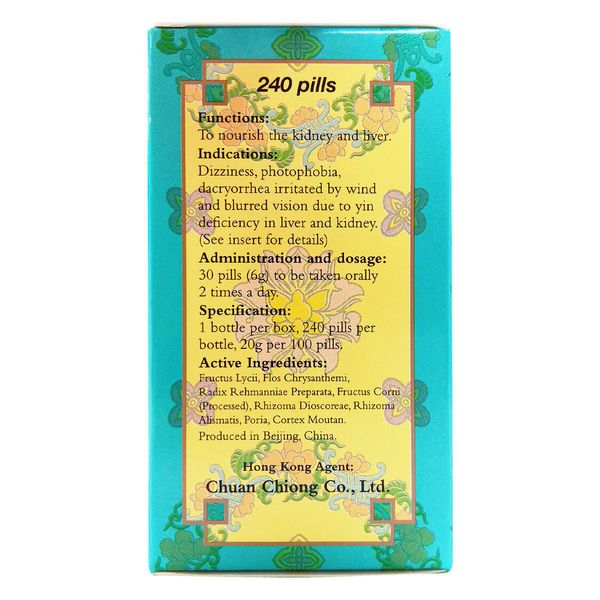 240 pills
Functions:
To nourish the kidney and liver.
Indications:
Dizziness, photophobia,
dacryorrhea irritated by wind
and blurred vision due to yin
deficiency in liver and kidney.
(See insert for details)
Administration and dosage:
30 pills (6g) to be taken orally
2 times a day.
Specification:
1 bottle per box, 240 pills per
bottle, 20g per 100 pills.
Active Ingredients:
Fructus Lycii, Flos Chrysanthemi,
Radix Rehmanniae Preparata, Fructus Corni
(Processed), Rhizoma Dioscoreae, Rhizoma
Alismatis, Poria, Cortex Moutan.
Produced in Beijing, China.
Hong Kong Agent:
Chuan Chiong Co., Ltd.